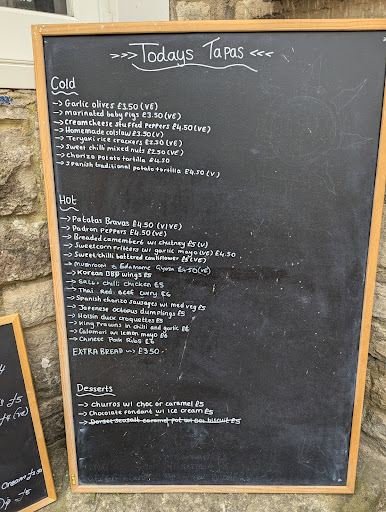 >>> Todays Tapas <<<
Cold
-> Garlic olives £3.50 (VE)
-> marinated baby figs £3.50 (VE)
-> Creamcheese stuffed peppers £4.50 (VE)
-> Homemade colslaw £3.50 (V)
-> Teryaki rice crackers £2.50 (VE)
-> Sweet chilli mixed nuts £2.50 (VE)
-> chorizo potato tortilla £4.50
-> Spanish traditional potato tortilla £4.50 (V)
Hot
-> Patatas Bravas £4.50 (V/VE)
-> Padron peppers £4.50 (VE)
-> Breaded camembert w/ chutney £5 (V)
-> Sweetcorn fritters w/ garlic mayo (VE) £4.50
-> Sweet/chilli battered cauliflower £5 (VE)
-> Mushroom & Edamame Gyoza £4.50 (VE)
-> Korean BBQ wings £5
-> Salt + chilli chicken £5
-> Thai Red Beef curry £6
-> Spanish chorizo sausages w/ med veg £5
-> Japenese octopus dumplings £5
-> Hoisin duck croquettes £5
-> King Prawns in chilli and garlic £6
-> Calamari w/ lemon mayo £6
-> Chinese Pork Ribs £6
EXTRA BREAD -> £3.50
Desserts
-> Churros w/ choc or caramel £5
-> Chocolate fondant w/ ice cream £5
-> Dorset seasalt caramel pot w/ biscuit £5
cream £5.50
£5